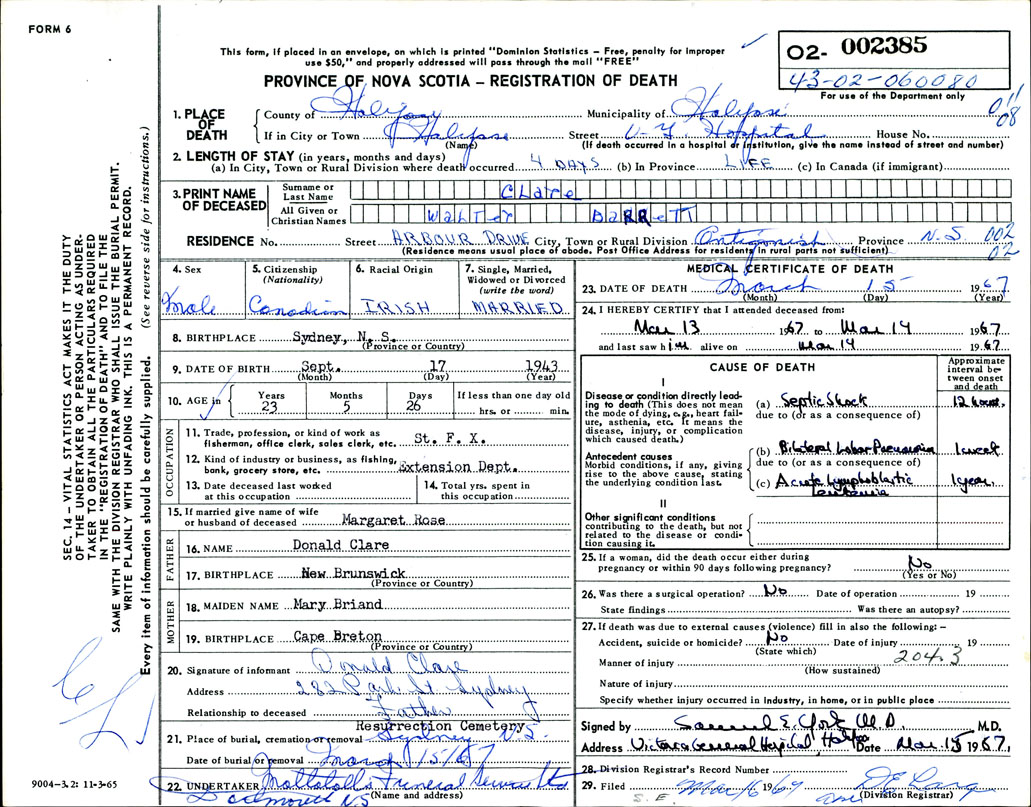 FORM 6
This form, if placed in an envelope, on which is printed "Dominion Statistics – Free, penalty for improper
use $50," and properly addressed will pass through the mail "FREE"
PROVINCE OF NOVA SCOTIA – REGISTRATION OF DEATH
O2- 002385
43-02-060080
For use of the Department only
011
08
1. PLACE OF DEATH
County of Halifax Municipality of Halifax
If in City or Town Halifax Street V.G. Hospital House No.
(Name) (If death occurred in a hospital or institution, give the name instead of street and number)
2. LENGTH OF STAY (in years, months and days)
(a) In City, Town or Rural Division where death occurred 4 DAYS (b) In Province LIFE (c) In Canada (if immigrant)
3. PRINT NAME OF DECEASED
Surname or Last Name Clare
All Given or Christian Names Walter Barrett
RESIDENCE No. Street ARBOUR DRIVE City, Town or Rural Division Antigonish Province N.S 002
02
(Residence means usual place of abode. Post Office Address for residents in rural parts not sufficient)
4. Sex Male
5. Citizenship (Nationality) Canadian
6. Racial Origin IRISH
7. Single, Married, Widowed or Divorced (write the word) MARRIED
8. BIRTHPLACE Sydney, N. S.
(Province or Country)
9. DATE OF BIRTH Sept. 17 1943
(Month) (Day) (Year)
10. AGE in Years 23 Months 5 Days 26 If less than one day old hrs. or min.
OCCUPATION
11. Trade, profession, or kind of work as fisherman, office clerk, sales clerk, etc. St. F. X.
12. Kind of industry or business, as fishing, bank, grocery store, etc. Extension Dept.
13. Date deceased last worked at this occupation
14. Total yrs. spent in this occupation
15. If married give name of wife or husband of deceased Margaret Rose
FATHER
16. NAME Donald Clare
17. BIRTHPLACE New Brunswick
(Province or Country)
MOTHER
18. MAIDEN NAME Mary Briand
19. BIRTHPLACE Cape Breton
(Province or Country)
20. Signature of informant Donald Clare
Address 282 Park St. Sydney
Relationship to deceased Father
Resurrection Cemetery
21. Place of burial, cremation or removal Sydney N.S.
Date of burial or removal March 15/67
22. UNDERTAKER Funeral Service Ltd
Dartmouth NS (Name and address)
MEDICAL CERTIFICATE OF DEATH
23. DATE OF DEATH March 15 1967
(Month) (Day) (Year)
24. I HEREBY CERTIFY that I attended deceased from:
Mar 13 1967 to Mar 14 1967
and last saw him alive on Mar 14 1967
CAUSE OF DEATH
Approximate interval between onset and death
I
Disease or condition directly leading to death (This does not mean the mode of dying, e.g., heart failure, asthenia, etc. It means the disease, injury, or complication which caused death.)
(a) Septic Shock 12 hours.
due to (or as a consequence of)
Antecedent causes
Morbid conditions, if any, giving rise to the above cause, stating the underlying condition last.
(b) Bilateral Lobar Pneumonia 1 week
due to (or as a consequence of)
(c) Acute Lymphoblastic Leukemia 1 year
II
Other significant conditions
contributing to the death, but not related to the disease or condition causing it.
25. If a woman, did the death occur either during pregnancy or within 90 days following pregnancy? No
(Yes or No)
26. Was there a surgical operation? No Date of operation 19
State findings Was there an autopsy?
27. If death was due to external causes (violence) fill in also the following: –
Accident, suicide or homicide? No Date of injury 19
(State which) 204.3
Manner of injury
(How sustained)
Nature of injury
Specify whether injury occurred in industry, in home, or in public place
Signed by Samuel E. York M.D. M.D.
Address Victoria General Hospital, Halifax Date Mar. 15 1967
28. Division Registrar's Record Number
29. Filed Mar 16 1967
S. E. (Division Registrar)
SEC. 14 – VITAL STATISTICS ACT MAKES IT THE DUTY
OF THE UNDERTAKER OR PERSON ACTING AS UNDER-
TAKER TO OBTAIN ALL THE PARTICULARS REQUIRED
IN THE "REGISTRATION OF DEATH" AND TO FILE THE
SAME WITH THE DIVISION REGISTRAR WHO SHALL ISSUE THE BURIAL PERMIT.
WRITE PLAINLY WITH UNFADING INK. THIS IS A PERMANENT RECORD.
Every item of information should be carefully supplied. (See reverse side for instructions.)
9004–3.2: 11-3-65